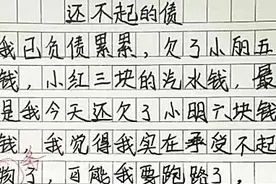 还不起的债
我已负债累累，欠了小丽五
钱，小红三块的汽水钱，最
是我今天还欠了小明六块钱
钱，我觉得我实在承受不起
了，可能我要跑路了，